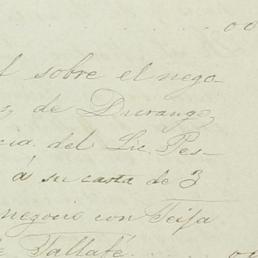 sobre el nego
de Durango,
del Lic. Pes-
á su carta de 3
negocio con Teifa
Tallafé